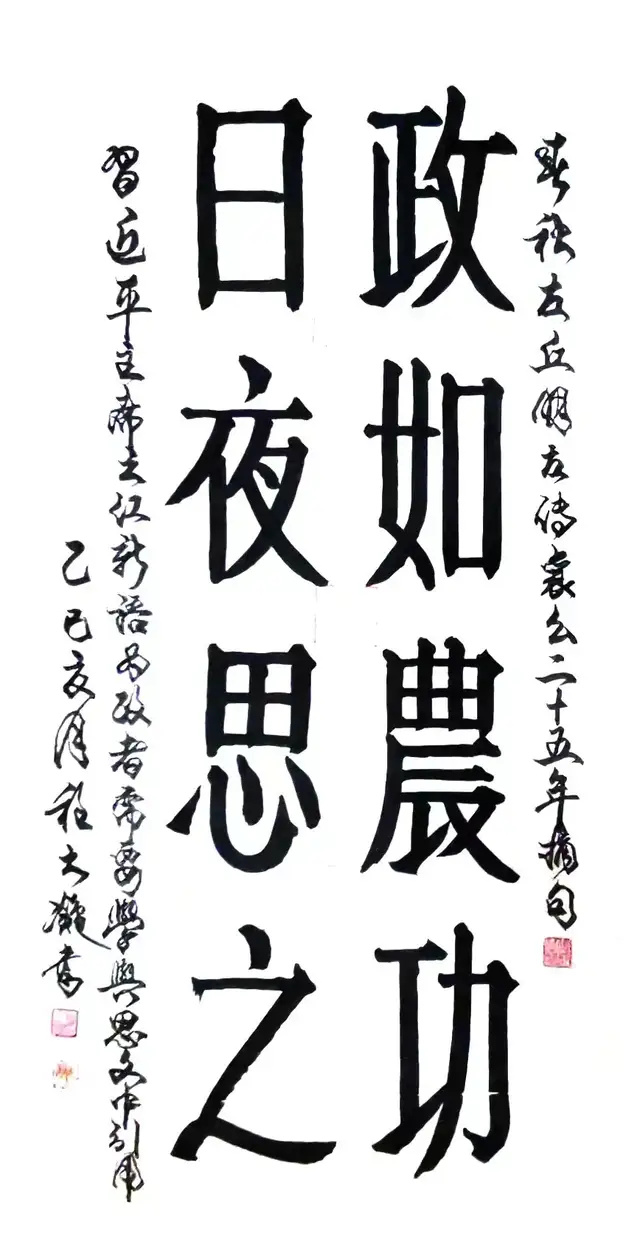 春秋左丘明左傳襄公二十五年摘句
政如農功
日夜思之
習近平主席之江新語為政者需要學與思文中引用
乙巳 月程大 書